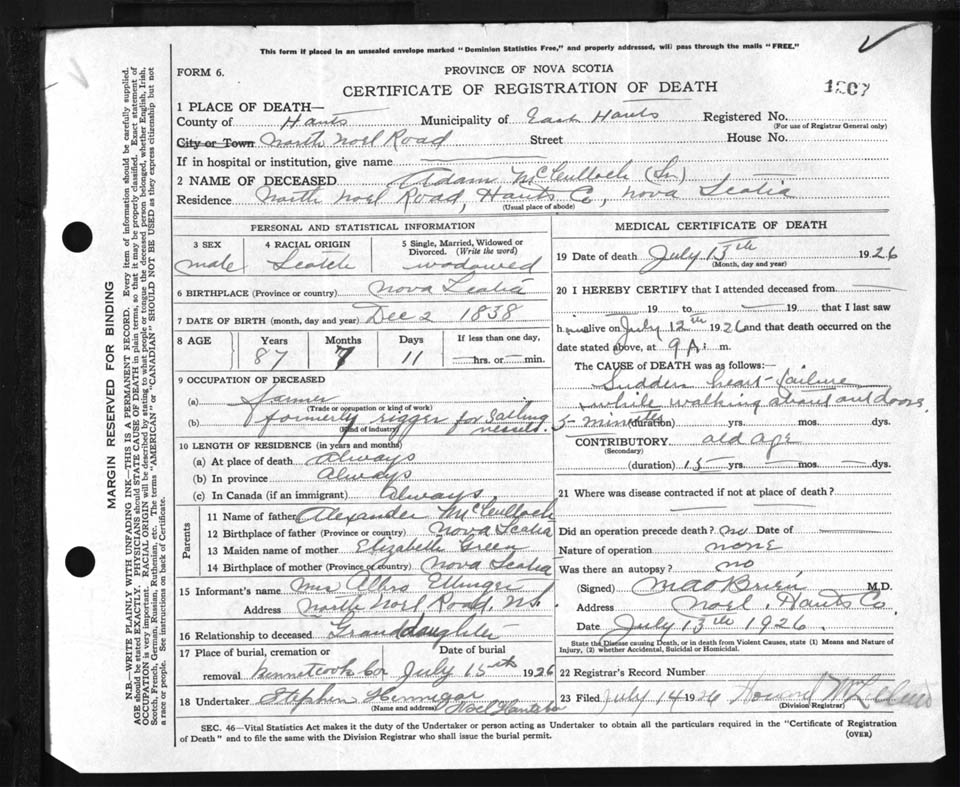 This form if placed in an unsealed envelope marked "Dominion Statistics Free," and properly addressed, will pass through the mails "FREE."
FORM 6.
PROVINCE OF NOVA SCOTIA
CERTIFICATE OF REGISTRATION OF DEATH
1207
1 PLACE OF DEATH—
County of Hants Municipality of East Hants Registered No.
(For use of Registrar General only)
City or Town North Noel Road Street House No.
If in hospital or institution, give name
2 NAME OF DECEASED Adam McCulloch (Sr)
Residence North Noel Road, Hants Co, Nova Scotia
(Usual place of abode)
PERSONAL AND STATISTICAL INFORMATION
3 SEX 4 RACIAL ORIGIN 5 Single, Married, Widowed or Divorced. (Write the word)
male Scotch widowed
6 BIRTHPLACE (Province or country) Nova Scotia
7 DATE OF BIRTH (month, day and year) Dec 2 1838
8 AGE Years Months Days If less than one day,
87 7 11 hrs. or min.
9 OCCUPATION OF DECEASED
(a) farmer
(Trade or occupation or kind of work)
(b) formerly rigger for sailing vessels.
(Kind of industry)
10 LENGTH OF RESIDENCE (in years and months)
(a) At place of death always
(b) In province always
(c) In Canada (if an immigrant) always
Parents
11 Name of father Alexander McCulloch
12 Birthplace of father (Province or country) Nova Scotia
13 Maiden name of mother Elizabeth Green
14 Birthplace of mother (Province or country) Nova Scotia
15 Informant's name Mrs Albro Ettinger
Address North Noel Road, N.S.
16 Relationship to deceased Granddaughter
17 Place of burial, cremation or removal Date of burial
Kennetcook Cor July 15th 1926
18 Undertaker Stephen Hennigar
(Name and address) Noel Hants Co
MEDICAL CERTIFICATE OF DEATH
19 Date of death July 13th 1926
(Month, day and year)
20 I HEREBY CERTIFY that I attended deceased from
19 to 19 that I last saw
him alive on July 12th 1926 and that death occurred on
date stated above, at 9 A. m.
The CAUSE of DEATH was as follows:—
Sudden heart-failure
while walking about outdoors,
5- minutes (duration) yrs. mos. dys.
CONTRIBUTORY old age
(Secondary)
(duration) 15 yrs. mos. dys.
21 Where was disease contracted if not at place of death?
Did an operation precede death? no Date of
Nature of operation none
Was there an autopsy? no
(Signed) M.D.
Address Noel, Hants Co.
Date July 13th 1926.
State the Disease causing Death, or in death from Violent Causes, state (1) Means and Nature of Injury, (2) whether Accidental, Suicidal or Homicidal.
22 Registrar's Record Number
23 Filed July 14 1926 Howard
(Division Registrar)
SEC. 46—Vital Statistics Act makes it the duty of the Undertaker or person acting as Undertaker to obtain all the particulars required in the "Certificate of Registration
of Death" and to file the same with the Division Registrar who shall issue the burial permit.
(OVER)
MARGIN RESERVED FOR BINDING
N.B.—WRITE PLAINLY WITH UNFADING INK—THIS IS A PERMANENT RECORD. Every item of information should be carefully supplied.
AGE should be stated EXACTLY. PHYSICIANS should STATE CAUSE OF DEATH in plain terms, so that it may be properly classified. Exact statement of
OCCUPATION is very important. RACIAL ORIGIN will be described by stating to what people or tongue the deceased person belonged, whether English, Irish,
Scotch, French, German, Russian, Ruthenian, etc. The terms "AMERICAN" or "CANADIAN" SHOULD NOT BE USED as they express citizenship but not
a race or people. See instructions on back of Certificate.